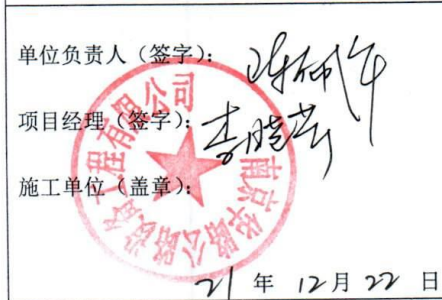 单位负责人（签字）：
项目经理（签字）：李晓芳
施工单位（盖章）：
南京华路公路设备工程有限公司
21 年 12 月 22 日